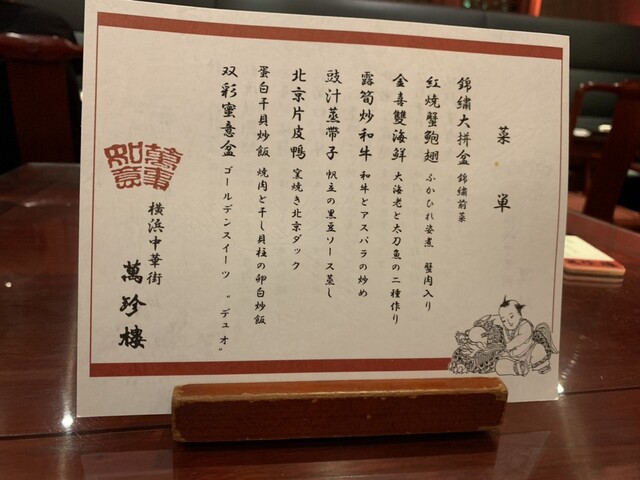 菜単
錦繍大拼盆 錦繍前菜
紅焼蟹鮑翅 ふかひれ姿煮 蟹肉入り
金喜雙海鮮 大海老と太刀魚の二種作り
露筍炒和牛 和牛とアスパラの炒め
豉汁蒸帶子 帆立の黒豆ソース蒸し
北京片皮鴨 窯焼き北京ダック
蛋白干貝炒飯 焼肉と干し貝柱の卵白炒飯
双彩蜜意盆 ゴールデンスイーツ “デュオ”
萬事如意
横浜中華街
萬珍樓